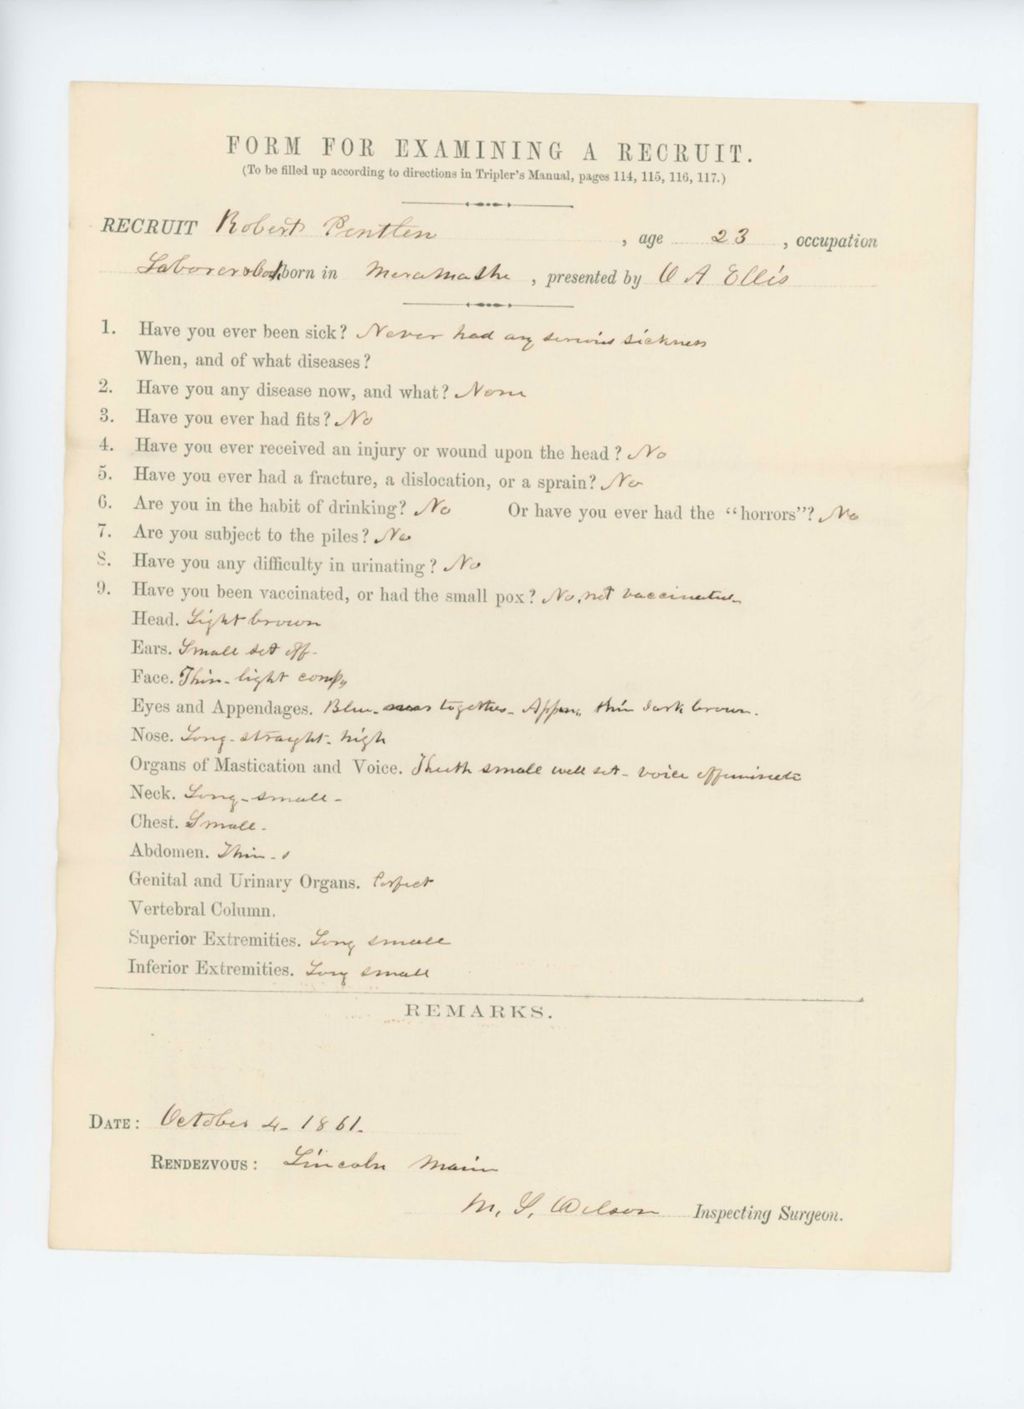 FORM FOR EXAMINING A RECRUIT.
(To be filled up according to directions in Tripler's Manual, pages 114, 115, 116, 117.)
RECRUIT Robert Pentlen , age 23 , occupation
Laborer born in Meramashe , presented by O A Ellis
1. Have you ever been sick? Never had any serious sickness
When, and of what diseases?
2. Have you any disease now, and what? None
3. Have you ever had fits? No
4. Have you ever received an injury or wound upon the head? No
5. Have you ever had a fracture, a dislocation, or a sprain? No
6. Are you in the habit of drinking? No Or have you ever had the "horrors"? No
7. Are you subject to the piles? No
8. Have you any difficulty in urinating? No
9. Have you been vaccinated, or had the small pox? No, not vaccinated
Head. Light brown
Ears. Small set off-
Face. Thin- light comp,,
Eyes and Appendages. Blue- near together- Appen,, thin dark brown.
Nose. Long- straight- high
Organs of Mastication and Voice. Theeth small well set- voice effeminate
Neck. Long- small-
Chest. Small-
Abdomen. Thin-
Genital and Urinary Organs. Perfect
Vertebral Column.
Superior Extremities. Long small
Inferior Extremities. Long small
REMARKS.
DATE: October 4- 1861-
RENDEZVOUS: Lincoln Maine
M. S. Wilson Inspecting Surgeon.